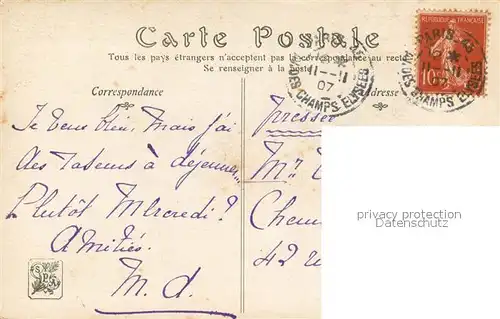 Carte Postale
Tous les pays étrangers n'acceptent pas la correspondance au recto
Se renseigner à la poste
Correspondance
Adresse
RÉPUBLIQUE FRANÇAISE
10
PARIS
11--11
07
AV. DES CHAMPS ELYSÉES
PARIS
11
07
AV. DES CHAMPS ELYSÉES
Je veux bien, mais j'ai
des raseurs à déjeuner
Plutôt Mercredi?
Amitiés.
M. d.
pressée
Mr
42
privacy protection
Datenschutz